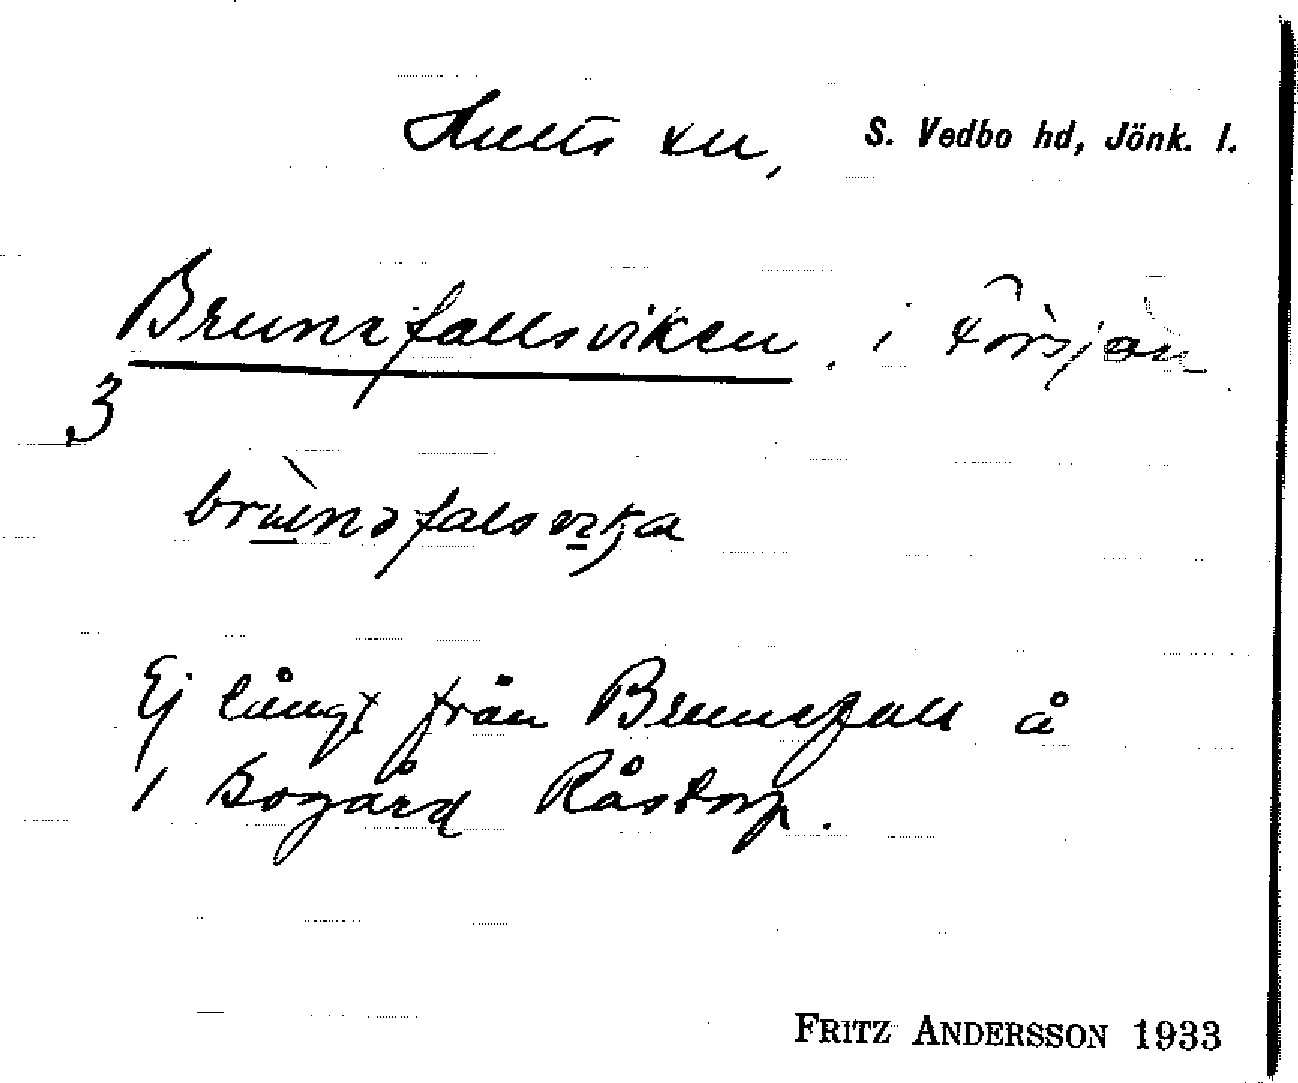 Hults sn, S. Vedbo hd, Jönk. l.
Brunnfallsviken. i Försjön
3
Ej långt från Brunnfall å
1 Sogård Råstorp.
FRITZ ANDERSSON 1933